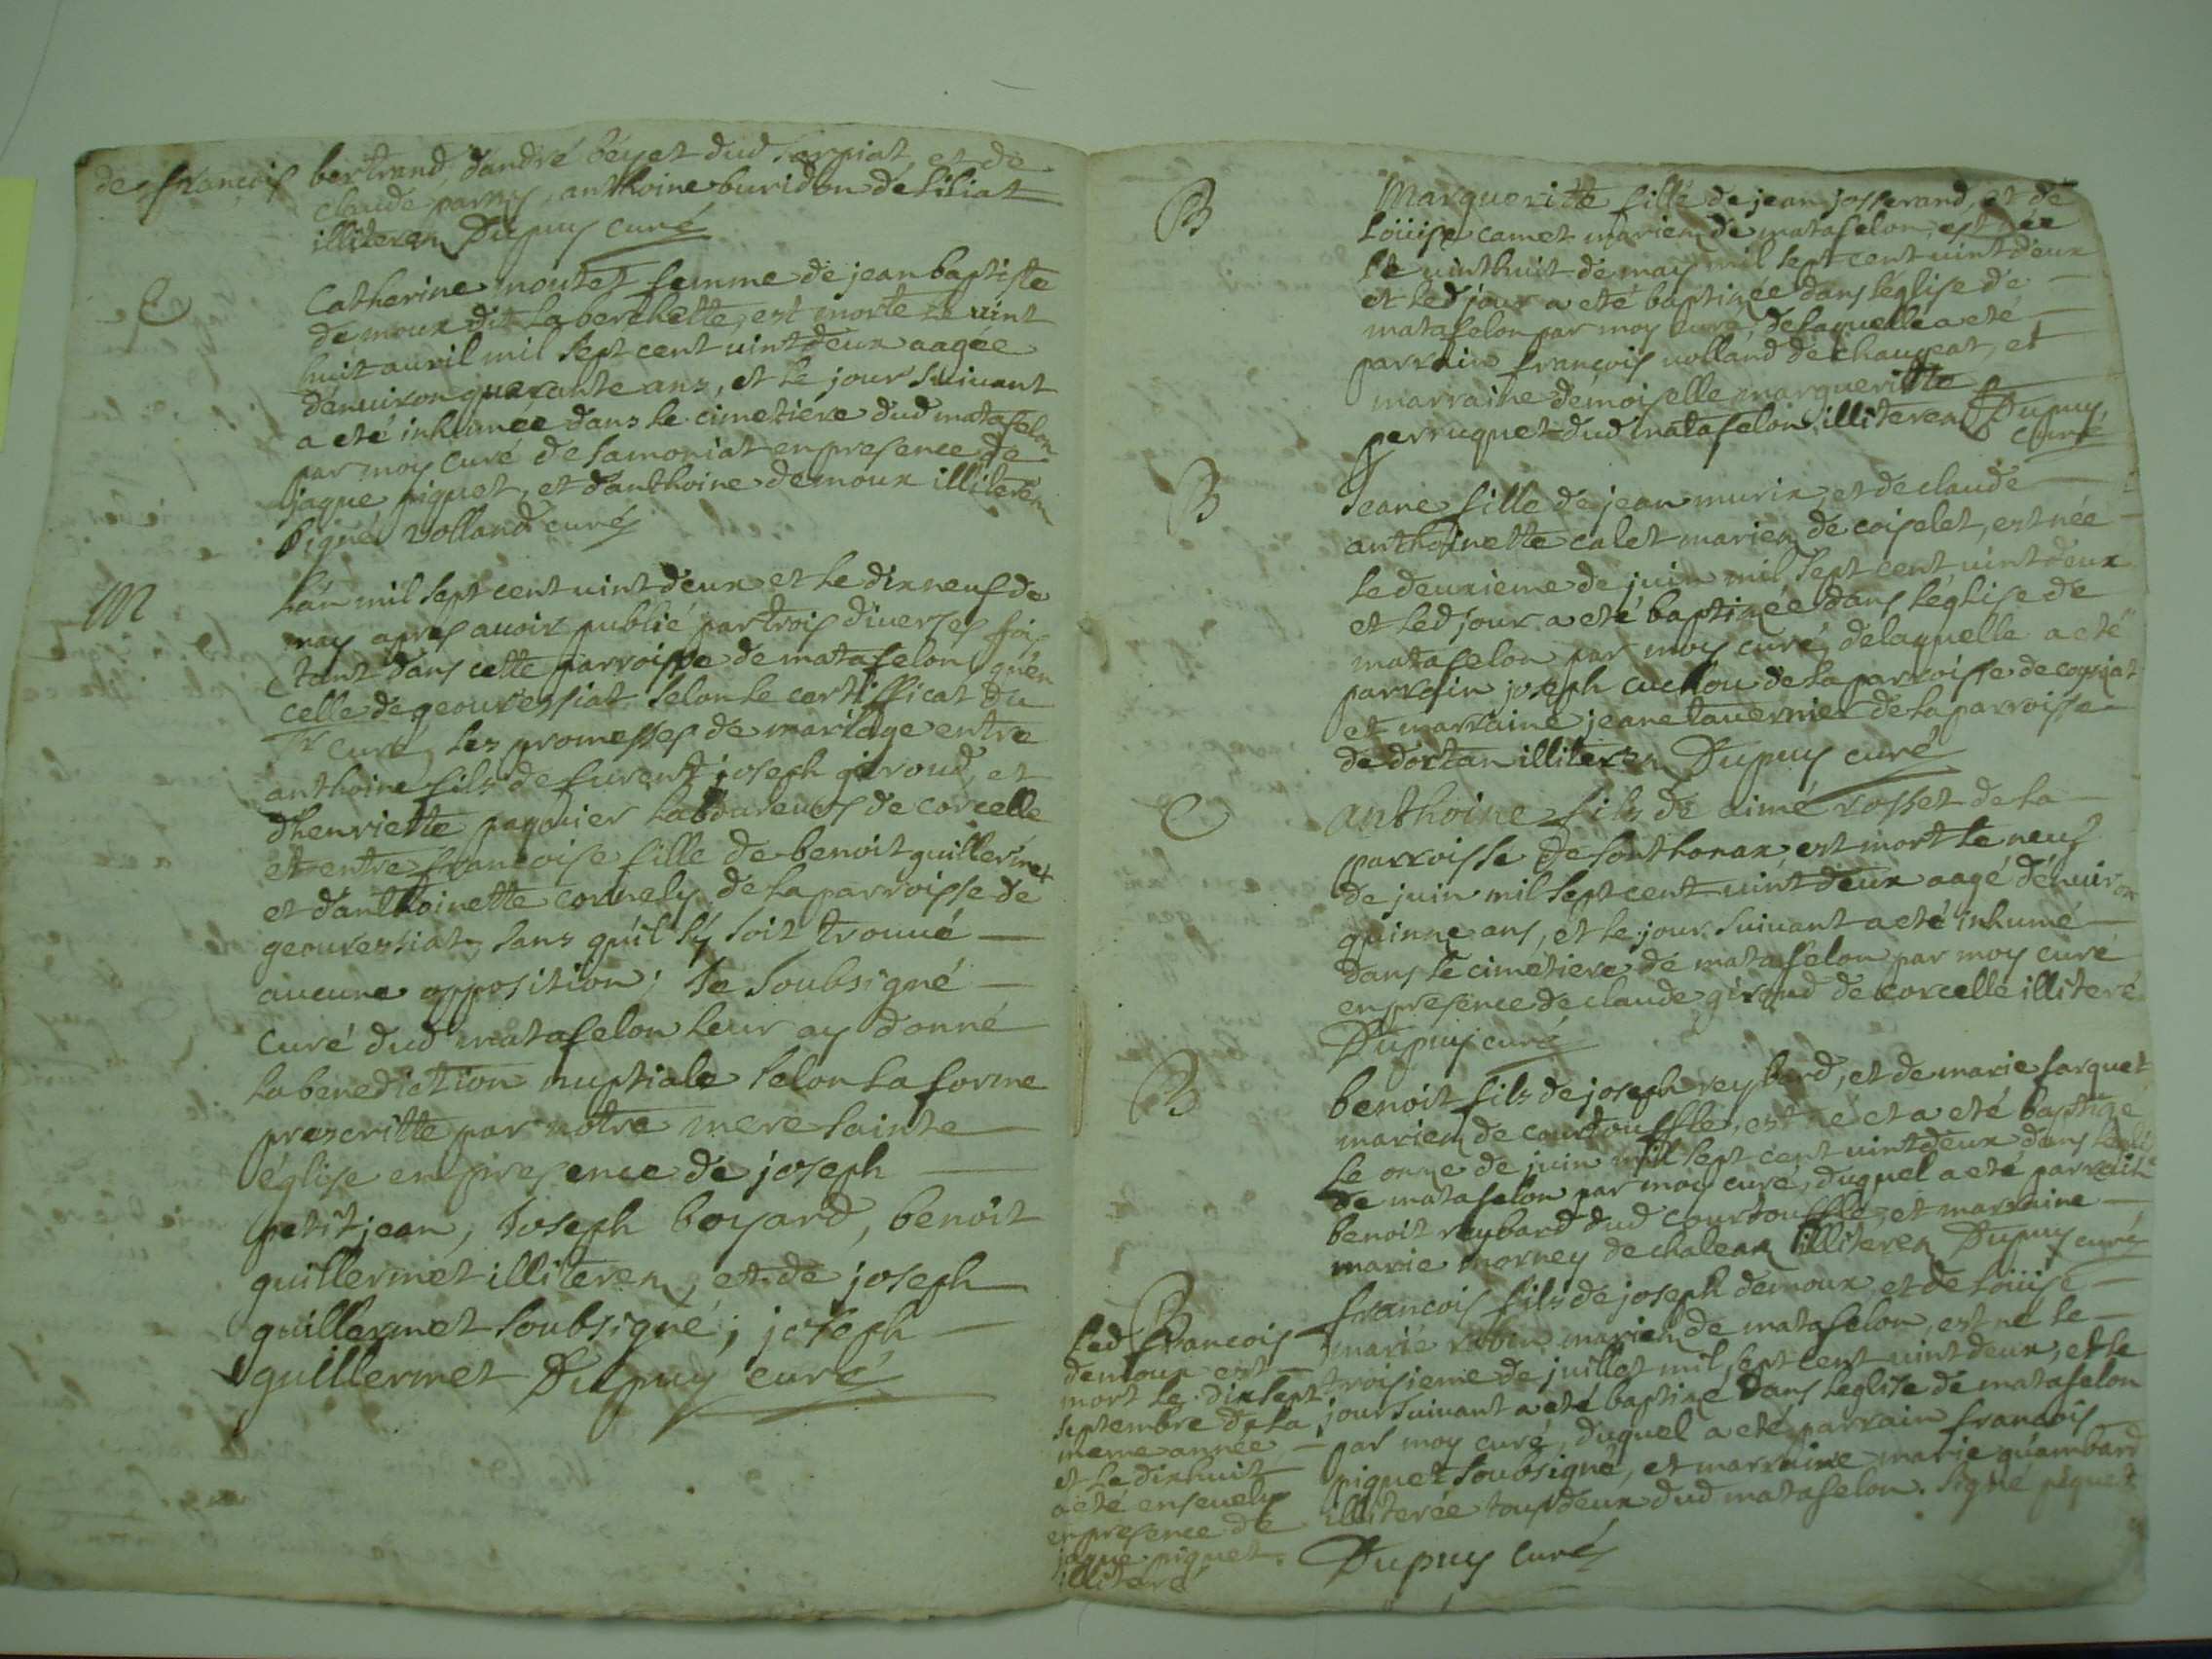 de françois bertrand, dandré béyet dud sarpiat, et de
claude parny, anthoine buridon de siliat
illiterez Dupuy curé
C
Catherine moutet femme de jean baptiste
demoux dit la berchette, est morte le vint
huit auril mil sept cent uint deux aagée
dénuiron quarante ans, et le jour suiuant
a eté inhumée dans le cimetiere dud matafelon
par moy curé de samoniat en presence de
jaque piquet, et danthoine demoux illiterez
signés volland curé
M
Lán mil sept cent uint deux et le dix neuf de
may apres auoir publié par trois diuerses fois
tant dans cette parroisse de matafelon, quén
celle de geouressiat selon le certifficat du
Sr curé, les promesses de mariage entre
anthoine fils de furent joseph géroud, et
dhenriette paquier laboureurs de corcelle
et entre françoise fille de benoit guillermet
et danthoinette cornely de la parroisse de
geouressiat, sans quil sy soit trouué
aucune opposition; Je soubsigné
curé dud matafelon leur ay donné
la benediction nuptiale selon la forme
prescritte par notre mere sainte
église en presence de joseph
petitjean, Joseph boyard, benoit
guillermet illiterez, et de joseph
guillermet soubsigné; joseph
guillermet Dupuy curé
B
Margueritte fille de jean josserand, et de
Loüise camet mariez de matafelon, est née
le uinthuit de may mil sept cent uint deux
et led jour a eté baptizée dans léglise de
matafelon par moy curé, de laquelle a eté
parrain françois uolland de chaugeat, et
marraine démoiselle margueritte
perruquet dud matafelon illiterez Dupuy,
curé
B
Jeane fille de jean murix et de claude
anthoinette calet mariez de coiselet, est née
le deuxieme de juin mil sept cent uint deux
et led jour a eté baptizée dans léglise de
matafelon par moy curé, de laquelle a eté
parrain joseph cuchou de la parroisse de coysiat
et marraine jeane tauernier de la parroisse
de dortan illiterez Dupuy curé
C
anthoine fils de aimé rosset de la
parroisse de sonthonax, est mort le neuf
de juin mil sept cent uint deux aagé dénuiron
quinze ans, et le jour suiuant a eté inhumé
dans le cimetiere de matafelon par moy curé
en presence de claude géroud de corcelle illiteré
Dupuy curé
B
benoit fils de joseph reybard, et de marie farquet
mariez de courtouffle, est né et a eté baptizé
le onze de juin mil sept cent uint deux dans léglise
de matafelon par moy curé, duquel a eté parrain
benoit reybard dud courtouffle, et marraine
marie morney de chaleax illiterez Dupuy curé
B
françois fils de joseph demoux et de loüise
marie robin mariez de matafelon est né le
troisieme de juillet mil sept cent uint deux, et le
jour suiuant a eté baptizé dans léglise de matafelon
par moy curé, duquel a eté parrain françois
piquet soubsigné, et marraine marie guambard
illiterée tous deux dud matafelon. signé piquet
Dupuy curé
Led francois
demoux est
mort le dix sept
septembre de la
meme année
et le dixhuit
a eté enseuely
en presence de
jaque piquet
illiteré